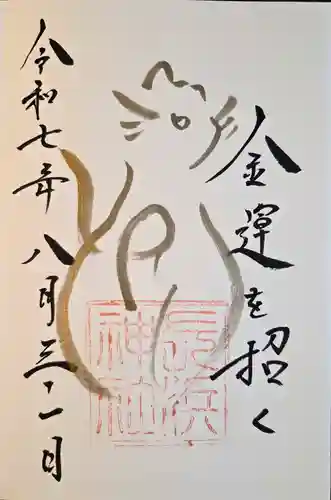 金運を招く
令和七年八月三十一日
長浜
神社